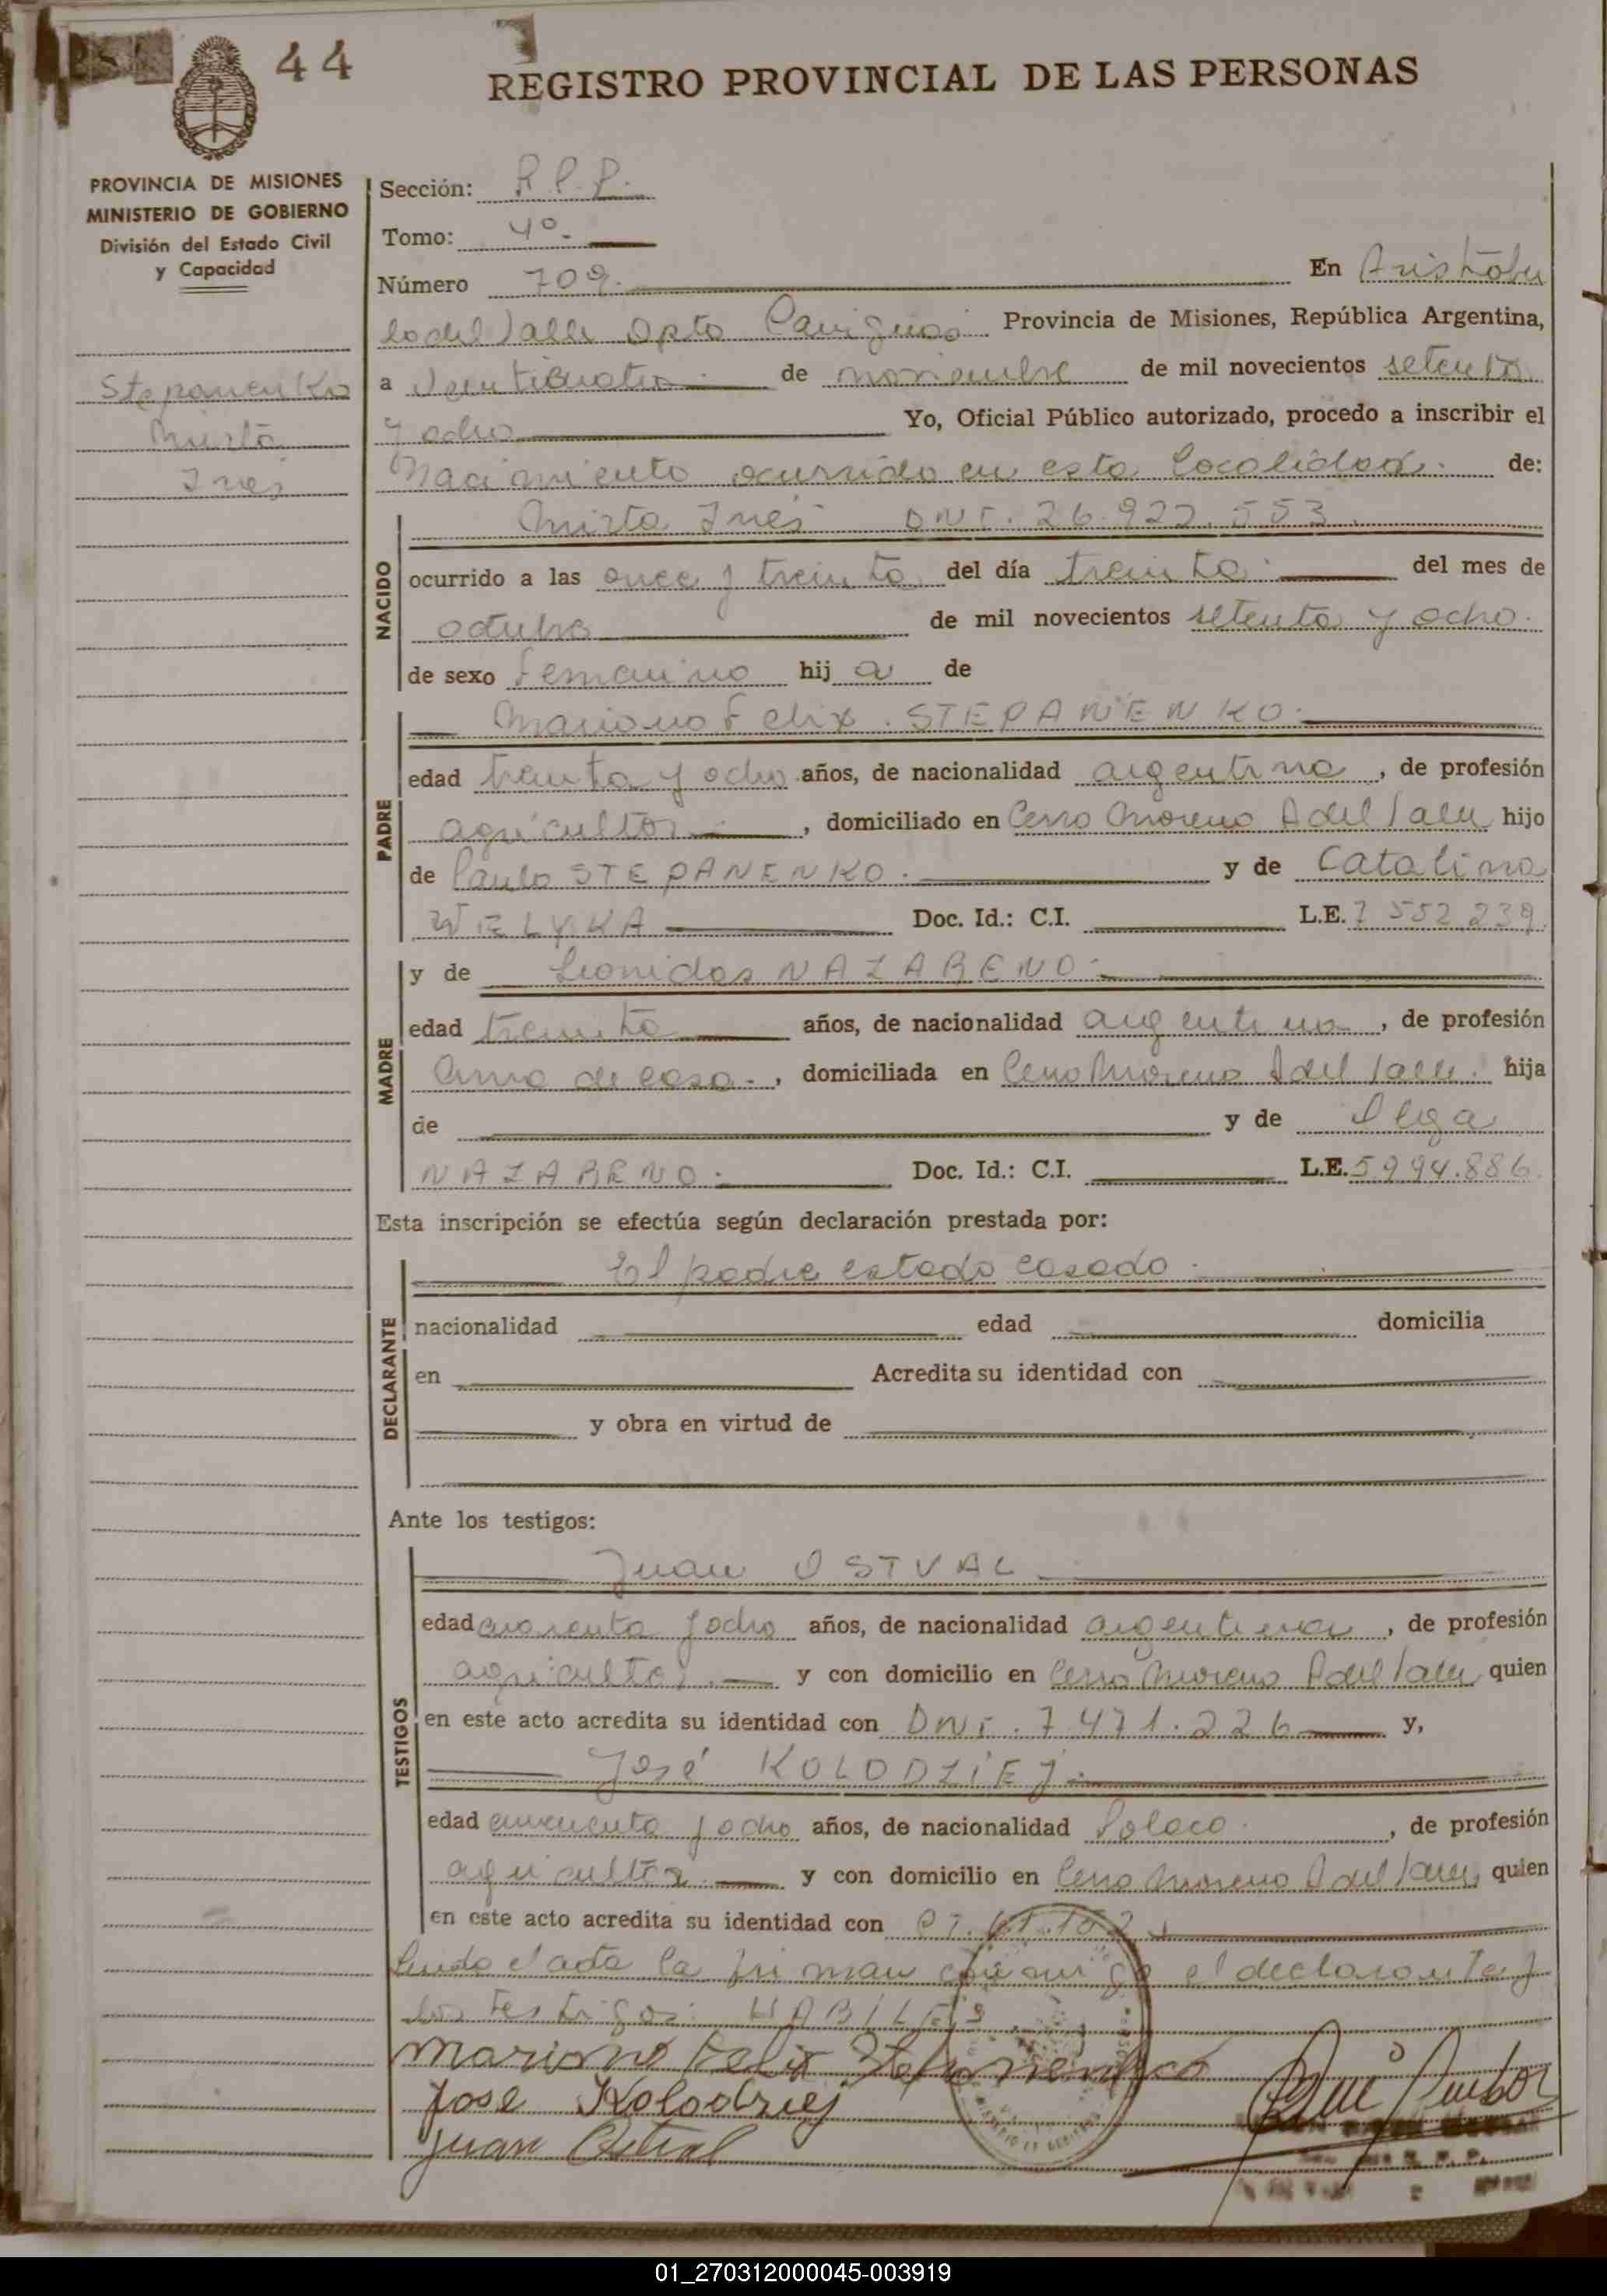 44
REGISTRO PROVINCIAL DE LAS PERSONAS
PROVINCIA DE MISIONES
MINISTERIO DE GOBIERNO
División del Estado Civil
y Capacidad
Stepanenko
Mirta
Ines
Sección: R.P.P.
Tomo: 4º.
Número 709. En Aristóbu
lo del Valle Dpto Cainguas Provincia de Misiones, República Argentina,
a Veinticuatro de noviembre de mil novecientos setenta
y ocho Yo, Oficial Público autorizado, procedo a inscribir el
Nacimiento ocurrido en esta localidad. de:
NACIDO
Mirta Inés DNI. 26.922.553.
ocurrido a las once y treinta del día treinta del mes de
octubre de mil novecientos setenta y ocho.
de sexo Femenino hij a de
PADRE
Mariano Felix. STEPANENKO.
edad treinta y ocho años, de nacionalidad argentina, de profesión
agricultor, domiciliado en Cerro Moreno A del Valle hijo
de Paulo STEPANENKO. y de Catalina
WIELYKA Doc. Id.: C.I. L.E. 7 552 239.
MADRE
y de Leonidas NAZARENO.
edad treinta años, de nacionalidad argentina, de profesión
Ama de casa., domiciliada en Cerro Moreno A del Valle. hija
de y de Olga
NAZARENO. Doc. Id.: C.I. L.E. 5994.886.
Esta inscripción se efectúa según declaración prestada por:
DECLARANTE
El padre estado casado.
nacionalidad edad domicilia
en Acredita su identidad con
y obra en virtud de
Ante los testigos:
TESTIGOS
Juan OSTVAL
edad cuarenta y ocho años, de nacionalidad argentina, de profesión
agricultor. y con domicilio en Cerro Moreno A del Valle quien
en este acto acredita su identidad con DNI. 7.471.226 y,
José KOLODZIEJ.
edad cincuenta y ocho años, de nacionalidad Polaco., de profesión
agricultor. y con domicilio en Cerro Moreno A del Valle, quien
en este acto acredita su identidad con
Leida el acta la firman conmigo el declarante y
los testigos: HABILES
Mariano Felix Stepanenko
Jose Kolodziej
Juan Ostval
01_270312000045-003919